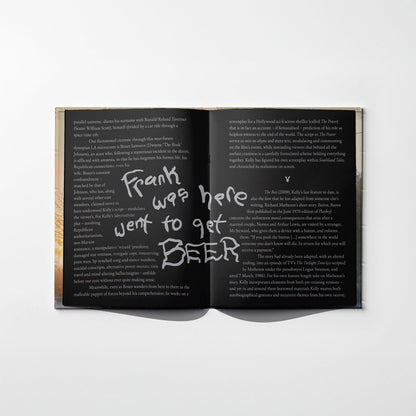 parallel universe, shares his surname with Ronald/Roland Taverner
(Seann William Scott), himself divided by a car ride through a
space-time rift.
Our foremost cicerone through this near-future
dystopian LA microcosm is Boxer Santaros (Dwayne 'The Rock'
Johnson), an actor who, following a mysterious incident in the desert,
is afflicted with amnesia, so that he has forgotten his former life, his
Republican connections, even his
wife. Boxer's constant
confoundment –
matched by that of
Johnson, who has, along
with several other cast
members, claimed never to
have understood Kelly's script – modulates
the viewer's. For Kelly's labyrinthine
plot – involving
Republican
authoritarianism,
neo-Marxist
extremism, a manipulative 'wizard' presiding
damaged war veterans, renegade cops,
porn stars, by
suicidal conscripts, alternative power sources, time
travel and mind-altering hallucinogens – unfolds
before our eyes without ever quite making sense.
Meanwhile, even as Boxer wanders from here to there as the
malleable puppet of forces beyond his comprehension, he works on a
Frank
was here
went to get
BEER
screenplay for a Hollywood sci-fi action thriller (called The Power)
that is in fact an accurate – if fictionalised – prediction of his role as
helpless witness to the end of the world. The script to The Power
serves as mise en abyme and meta text, modulating and commenting
on the film's events, while reminding viewers that behind all the
mythic craziness is a carefully formulated scheme holding everything
together. Kelly has figured his own screenplay within Southland Tales,
and chronicled its realisation on screen.
V
The Box (2009), Kelly's last feature to date, is
also the first that he has adapted from someone else's
writing. Richard Matheson's short story Button, Button
(first published in the June 1970 edition of Playboy)
concerns the unforeseen moral consequences that arise after a
married couple, Norma and Arthur Lewis, are visited by a stranger,
Mr Steward, who gives them a device with a button, and informs
them: "If you push the button [...] somewhere in the world
someone you don't know will die. In return for which you will
receive a payment."
The story had already been adapted, with an altered
ending, into an episode of TV's The Twilight Zone (co-scripted
by Matheson under the pseudonym Logan Swanson, and
aired 7 March, 1986). For his own feature length take on Matheson's
story, Kelly incorporates elements from both pre-existing versions –
and yet in and around these borrowed materials Kelly weaves both
autobiographical gestures and recurrent themes from his own œuvre,